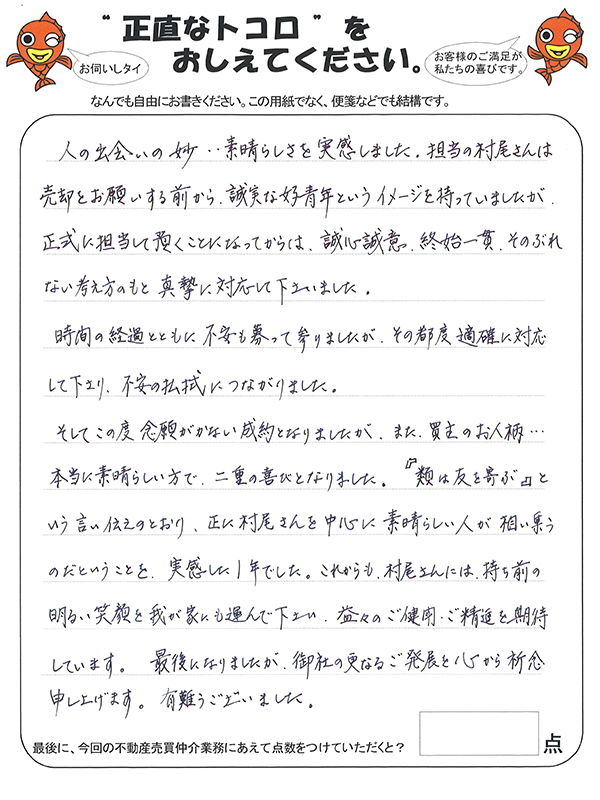 “正直なトコロ”を
おしえてください。
お伺いしタイ
お客様のご満足が
私たちの喜びです。
なんでも自由にお書きください。この用紙でなく、便箋などでも結構です。
人の出会いの妙‥素晴らしさを実感しました。担当の村尾さんは
売却をお願いする前から、誠実な好青年というイメージを持っていましたが、
正式に担当して頂くことになってからは、誠心誠意。終始一貫、そのぶれ
ない考え方のもと真摯に対応して下さいました。
時間の経過とともに不安も募って参りましたが、その都度適確に対応
して下さり、不安の払拭につながりました。
そしてこの度念願がかない成約となりましたが、また、買主のお人柄…
本当に素晴らしい方で、二重の喜びとなりました。『類は友を寄ぶ』と
いう言い伝えのとおり、正に村尾さんを中心に素晴らしい人が相い集う
のだということを、実感した1年でした。これからも、村尾さんには、持ち前の
明るい笑顔を我が家にも運んで下さい、益々のご健闘・ご精進を期待
しています。最後になりましたが、御社の更なるご発展を心から祈念
申し上げます。有難うございました。
最後に、今回の不動産売買仲介業務にあえて点数をつけていただくと？
点